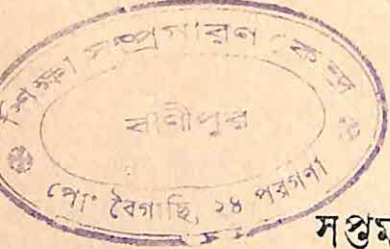 শিক্ষা সম্প্রসারণ কেন্দ্র
বাণীপুর
পোঃ বৈগাছি, ২৪ পরগণা
সপ্তম